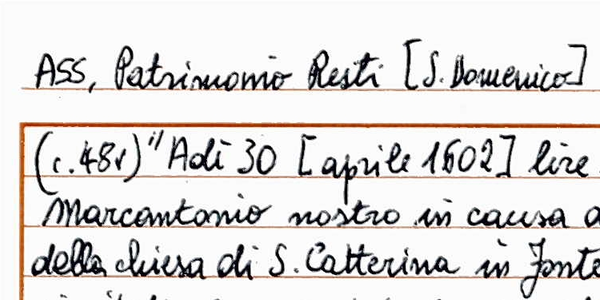 ASS, Patrimonio Resti [S. Domenico]
(c.48v) "Adì 30 [aprile 1602] lire
Marcantonio nostro in causa a
della chiesa di S. Catterina in Fonte